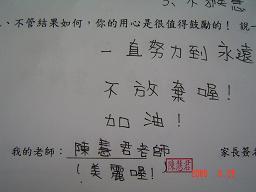 、不管結果如何，你的用心是很值得鼓勵的！說一
一直努力到永遠
不放棄喔！
加油！
我的老師：陳慧君老師 陳慧君 家長簽名
（美麗喔！）